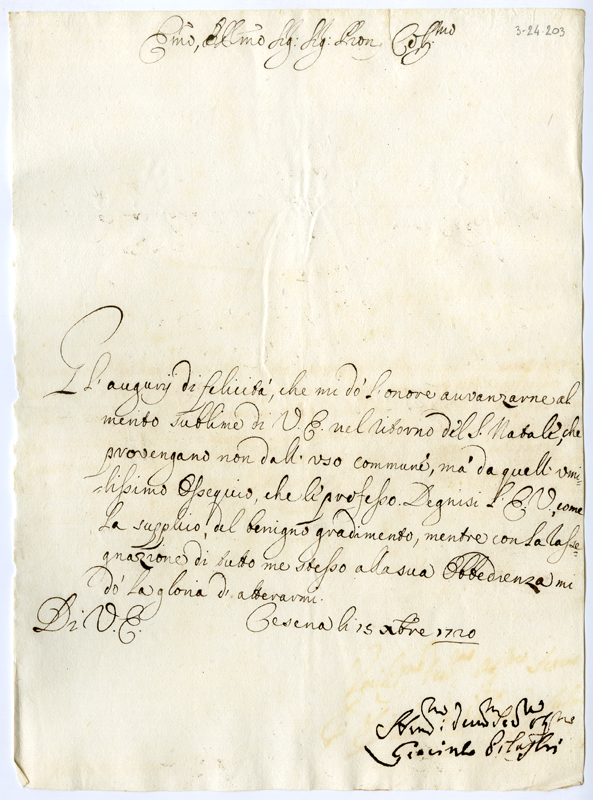 Emo, e Rmo Sig: Sig: Pron Colmo
3-24-203
L'augurij di felicità, che mi dò l'onore auvanzarne al
merito sublime di V. E. nel ritorno del S. Natale, che
provengano non dall' uso commune, mà da quell' umi-
lissimo Ossequio, che li professo. Degnisi l' E. V., come
la supplico, del benigno gradimento, mentre con la rasse-
gnazione di tutto me stesso alla sua Obbedienza mi
dò la gloria di atterarmi.
Di V. E. Cesena li 15 Xbre 1720
Giacinto